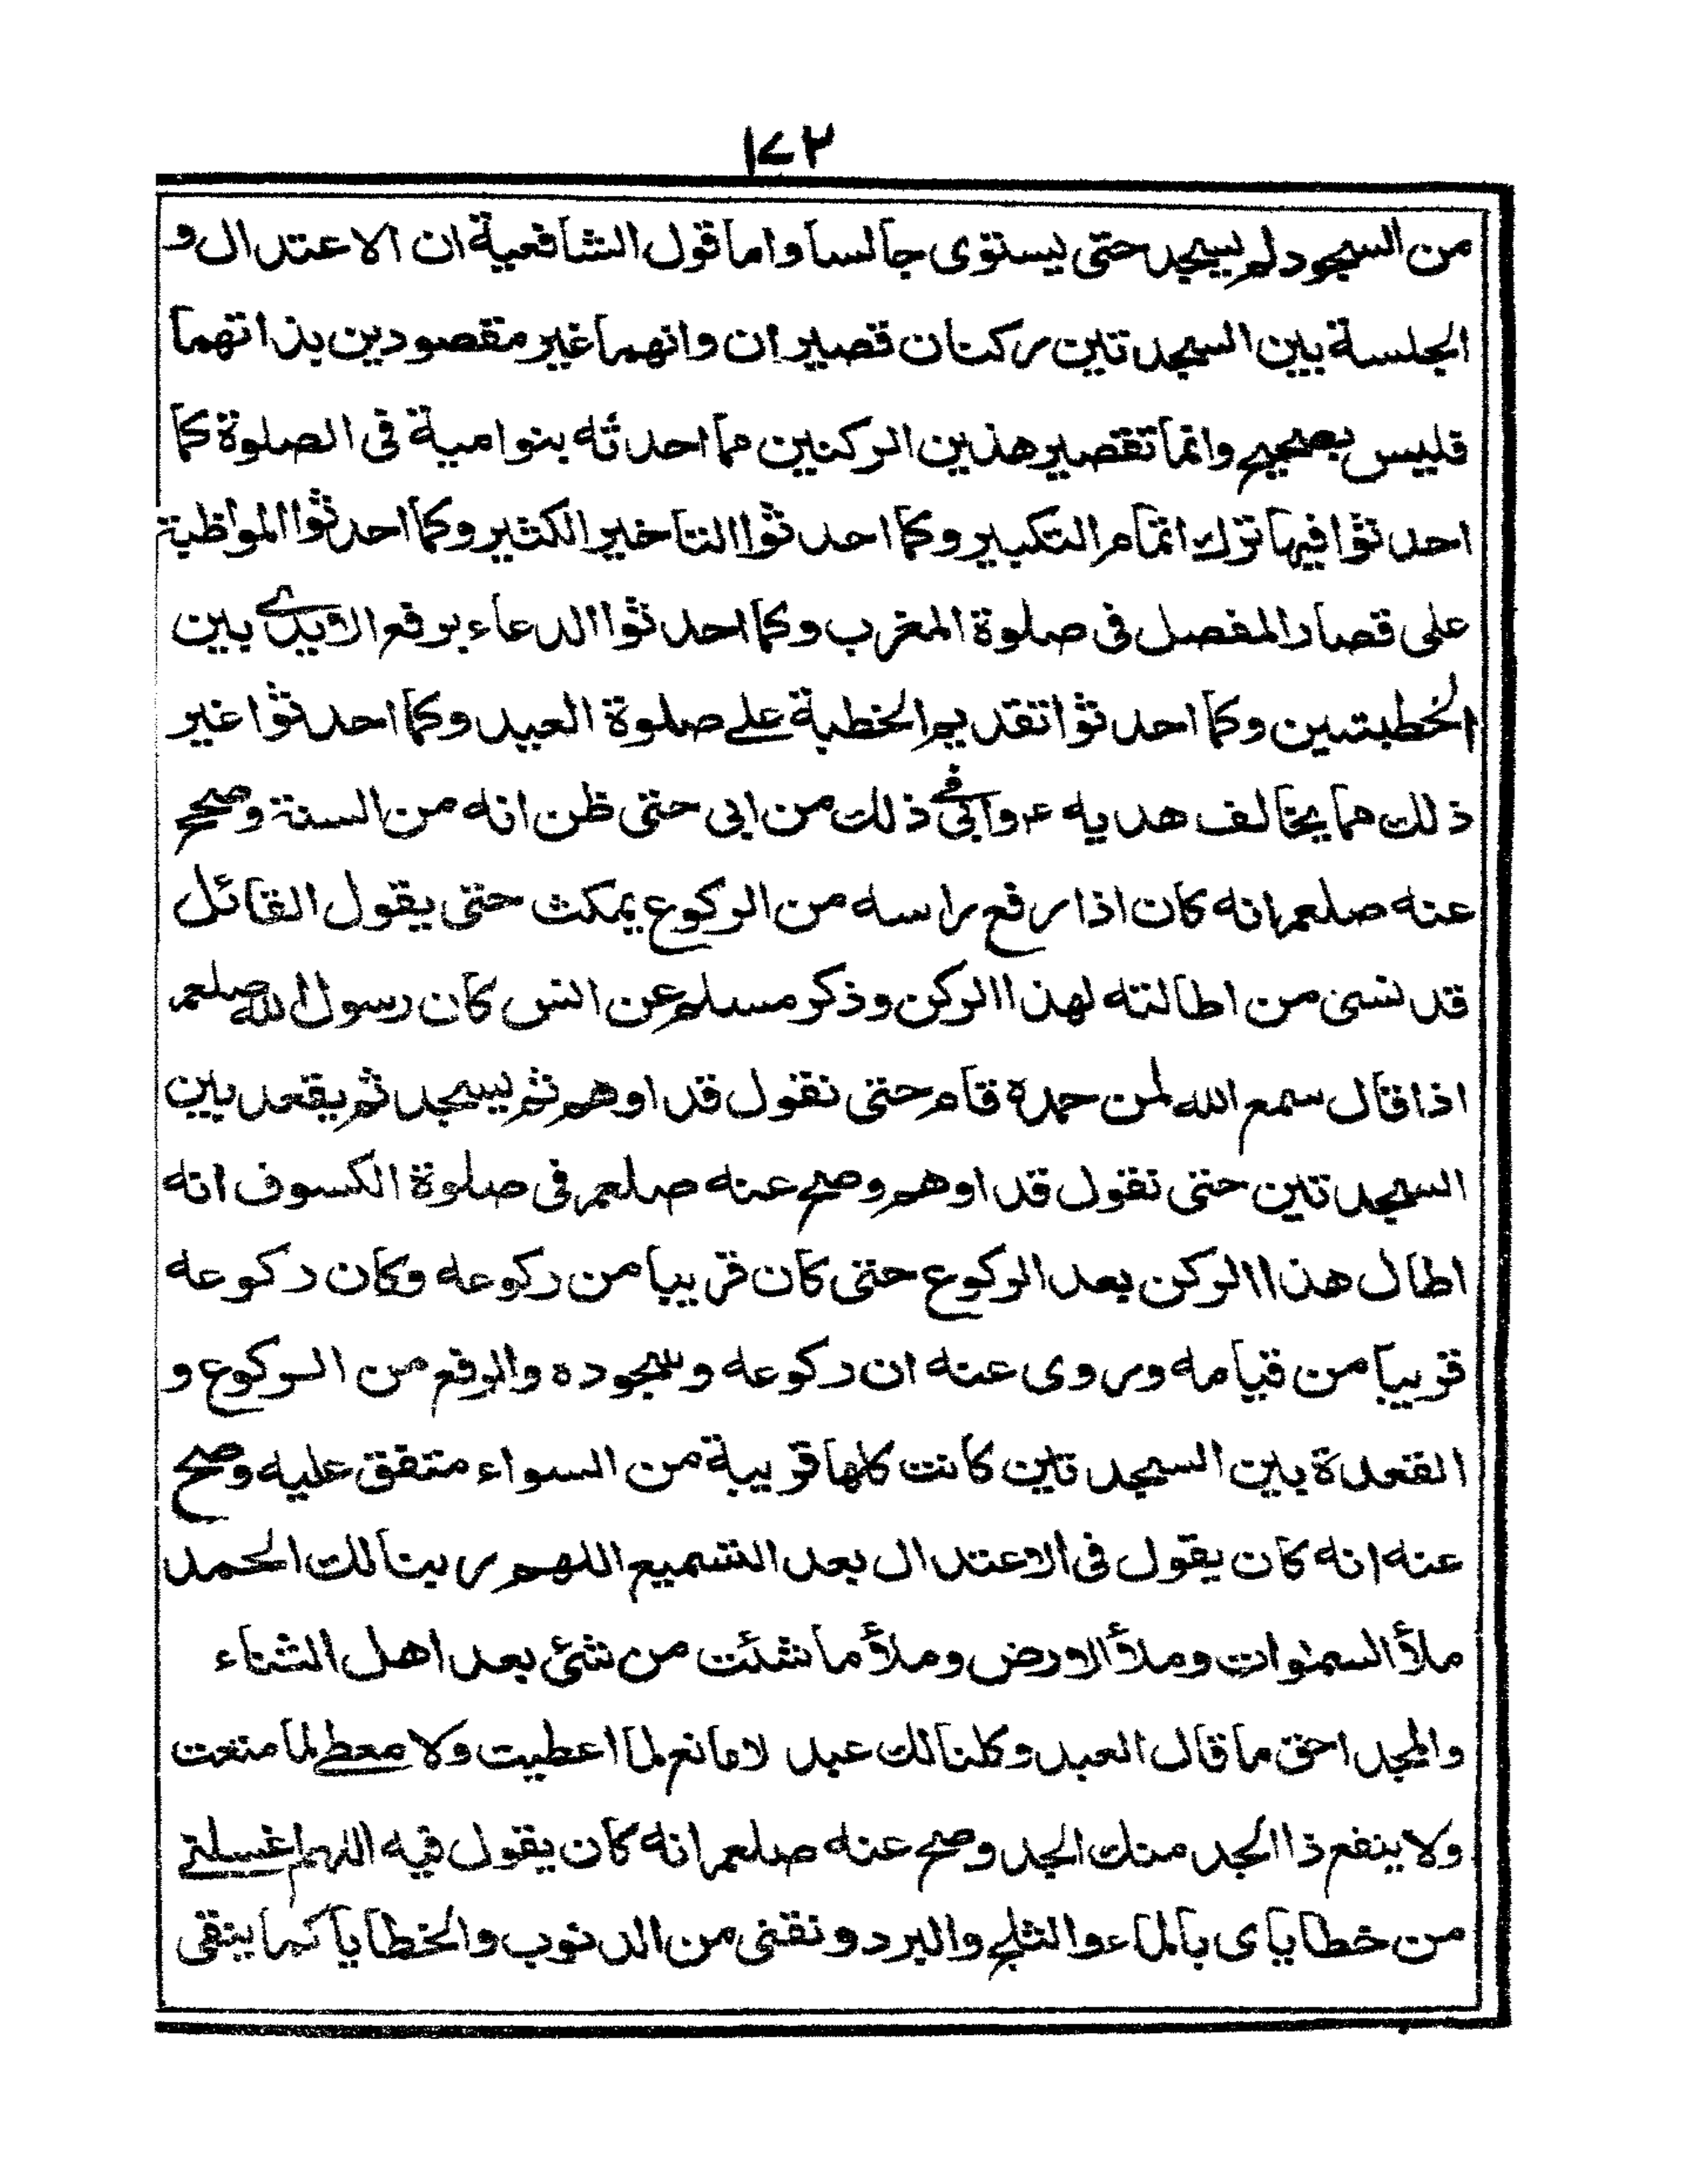 ١٧٢
من السجود لم يسجد حتى يستوى جالسا واما قول الشافعية ان الاعتدال و
الجلسة بين السجدتين ركنان قصيران وانهما غير مقصودين بذاتهما
فليس بصحيح وانما تقصير هذين الركنين مما احدثه بنوامية فى الصلوة كما
احدثوا فيها ترك اتمام التكبير وكما احدثوا التاخير الكثير وكما احدثوا المواظبة
على قصار المفصل فى صلوة المغرب وكما احدثوا الدعاء برفع الايدے بين
الخطبتين وكما احدثوا تقديم الخطبة علے صلوة العيد وكما احدثوا غير
ذلك مما يخالف هديه ء وابى فے ذلك من ابى حتى ظن انه من السنة وصح
عنه صلعم انه كان اذا رفع راسه من الركوع يمكث حتى يقول القائل
قد نسى من اطالته لهذا الركن وذكر مسلم عن انس كان رسول الله صلعم
اذا قال سمع الله لمن حمدة قام حتى نقول قد اوهم ثم يسجد ثم يقعد بين
السجدتين حتى نقول قد اوهم وصح عنه صلعم فى صلوة الكسوف انه
اطال هذا الركن بعد الركوع حتى كان قريبا من ركوعه وكان ركوعه
قريبا من قيامه وروى عنه ان ركوعه وسجوده والرفع من الركوع و
القعدة بين السجدتين كانت كلها قريبة من السواء متفق عليه وصح
عنه انه كان يقول فى الاعتدال بعد التسميع اللهم ربنا لك الحمد
ملأ السموات وملأ الارض وملأ ما شئت من شئ بعد اهل الثناء
والمجد احق ما قال العبد وكلنا لك عبد لا مانع لما اعطيت ولا معطے لما منعت
ولا ينفع ذا الجد منك الجد وصح عنه صلعم انه كان يقول فيه اللهم اغسلنے
من خطاياى بالماء والثلج والبرد ونقنى من الذنوب والخطايا كما ينقى